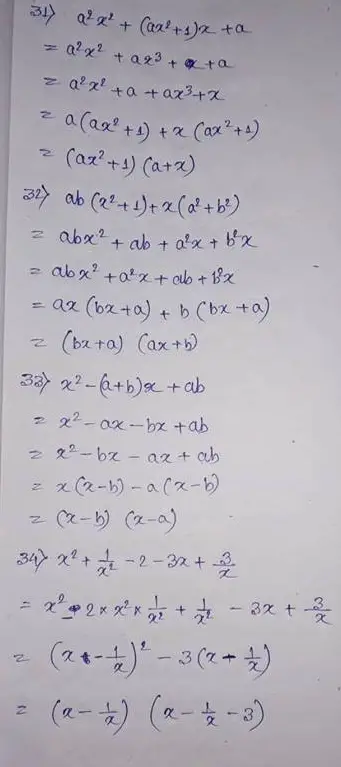 31) a²x² + (ax²+1)x + a
= a²x² + ax³ + x + a
= a²x² + a + ax³ + x
= a(ax²+1) + x(ax²+1)
= (ax²+1) (a+x)
32) ab(x²+1) + x(a²+b²)
= abx² + ab + a²x + b²x
= abx² + a²x + ab + b²x
= ax(bx+a) + b(bx+a)
= (bx+a) (ax+b)
33) x² - (a+b)x + ab
= x² - ax - bx + ab
= x² - bx - ax + ab
= x(x-b) - a(x-b)
= (x-b) (x-a)
34) x² + 1/x² - 2 - 3x + 3/x
= x² - 2 × x² × 1/x² + 1/x² - 3x + 3/x
= (x - 1/x)² - 3(x - 1/x)
= (x - 1/x) (x - 1/x - 3)